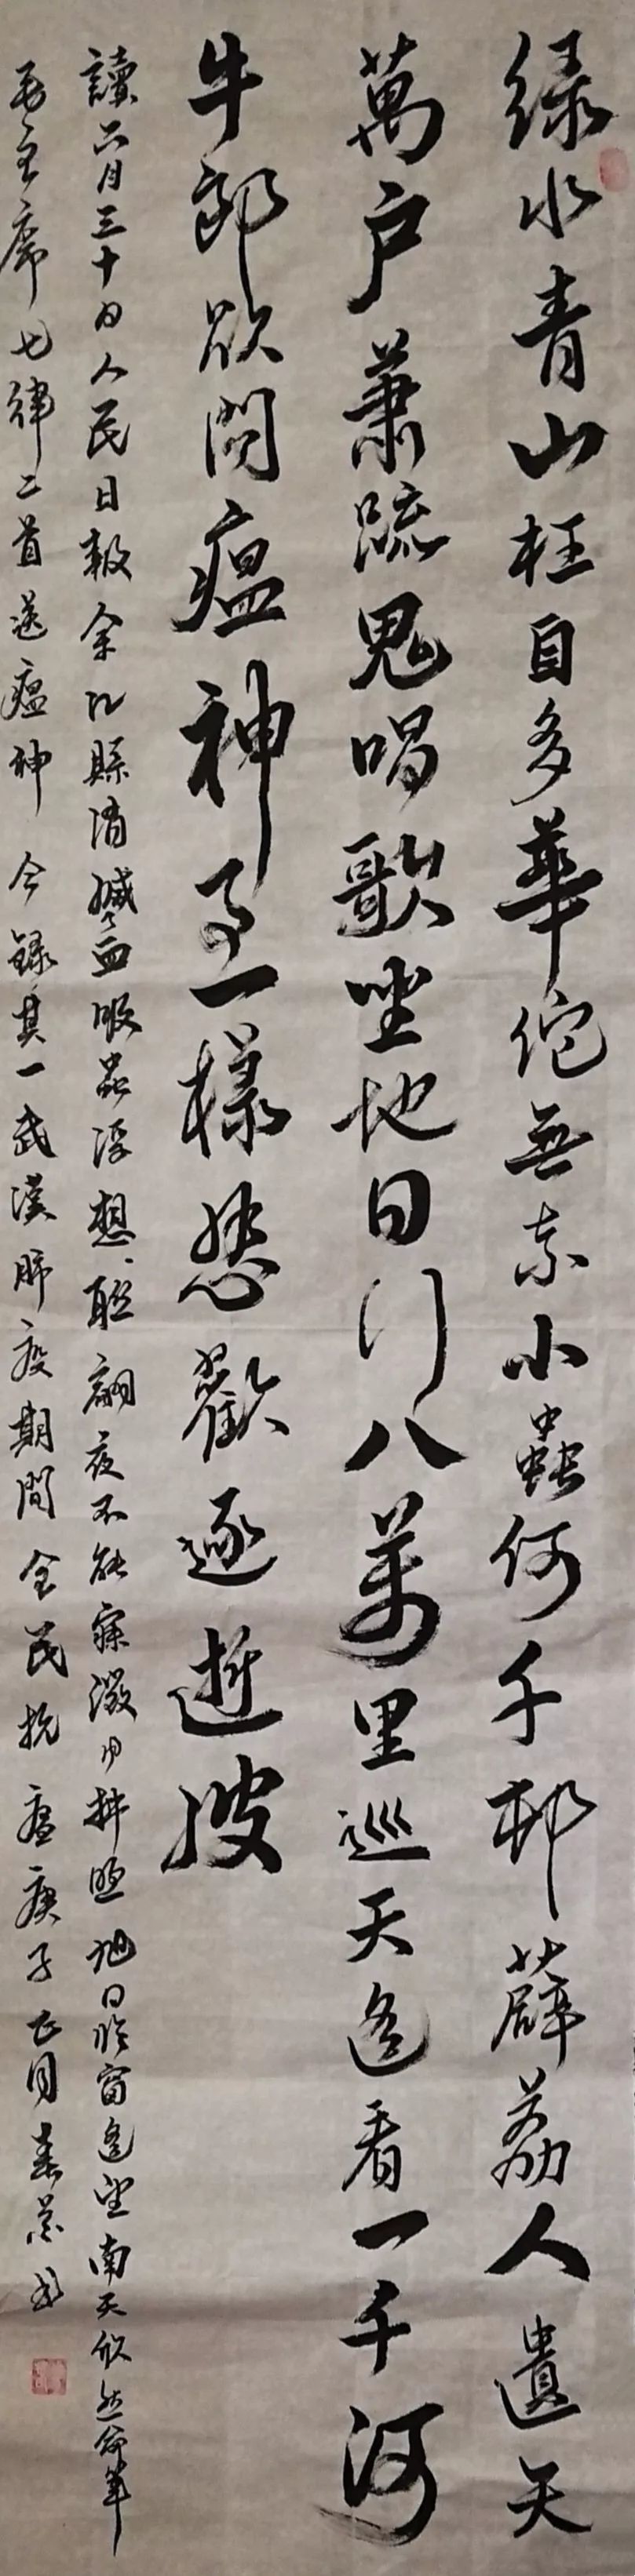 绿水青山枉自多華佗無奈小蟲何千邨薜荔人遺矢
萬户蕭疏鬼唱歌坐地日行八萬里巡天遥看一千河
牛郎欲問瘟神事一樣悲歡逐逝波
讀六月三十日人民日報余江縣消滅血吸蟲浮想聯翩夜不能寐微風拂煦旭日臨窗遥望南天欣然命筆
毛主席七律二首送瘟神 今録其一武漢肺疫期間全民抗瘟庚子正月春書